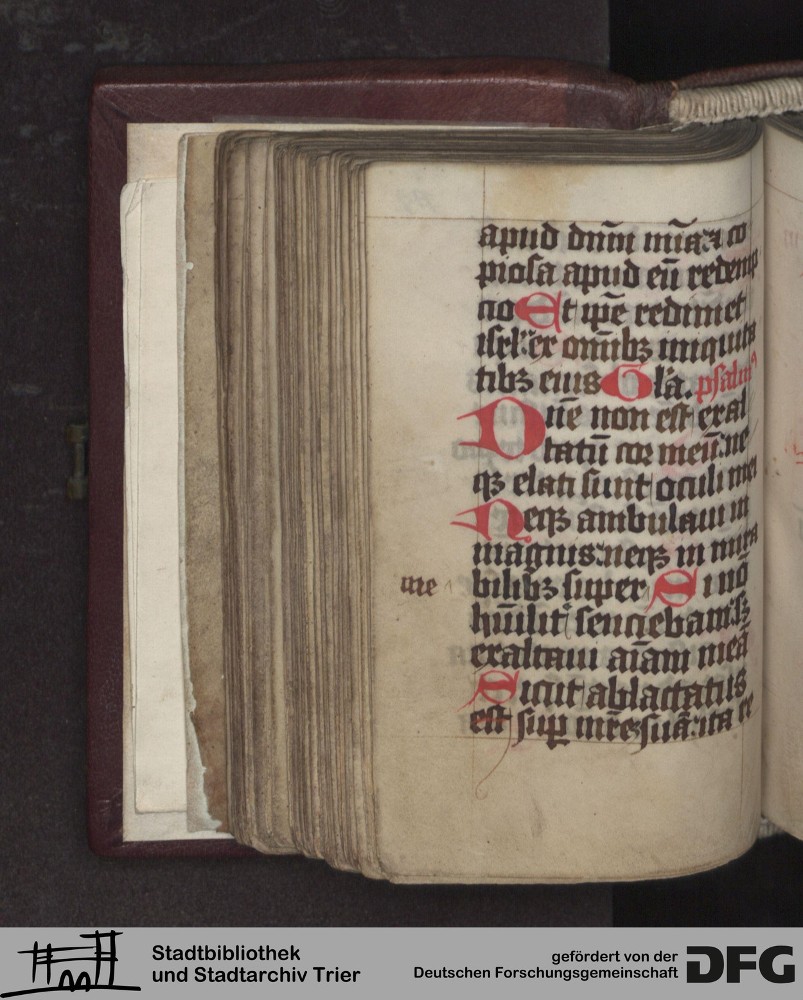 apud dnm̄ mīa ⁊ co
piosa apud eū redemp
cio Et ip̄e redimet
isrl' ex omībꝫ iniquita
tibꝫ eius Gl'a. psalm
Dn̄e non est exal
tatū cor meū: ne
qꝫ elati sunt oculi mei
Neqꝫ ambulaui in
magnis: neqꝫ in mira
me bilibꝫ super Si nō
hūilit' senciebam: sꝫ
exaltaui aīam meā
Sicut ablactatus
est suꝑ mr̄e suā: ita re
Stadtbibliothek
und Stadtarchiv Trier
gefördert von der
Deutschen Forschungsgemeinschaft
DFG